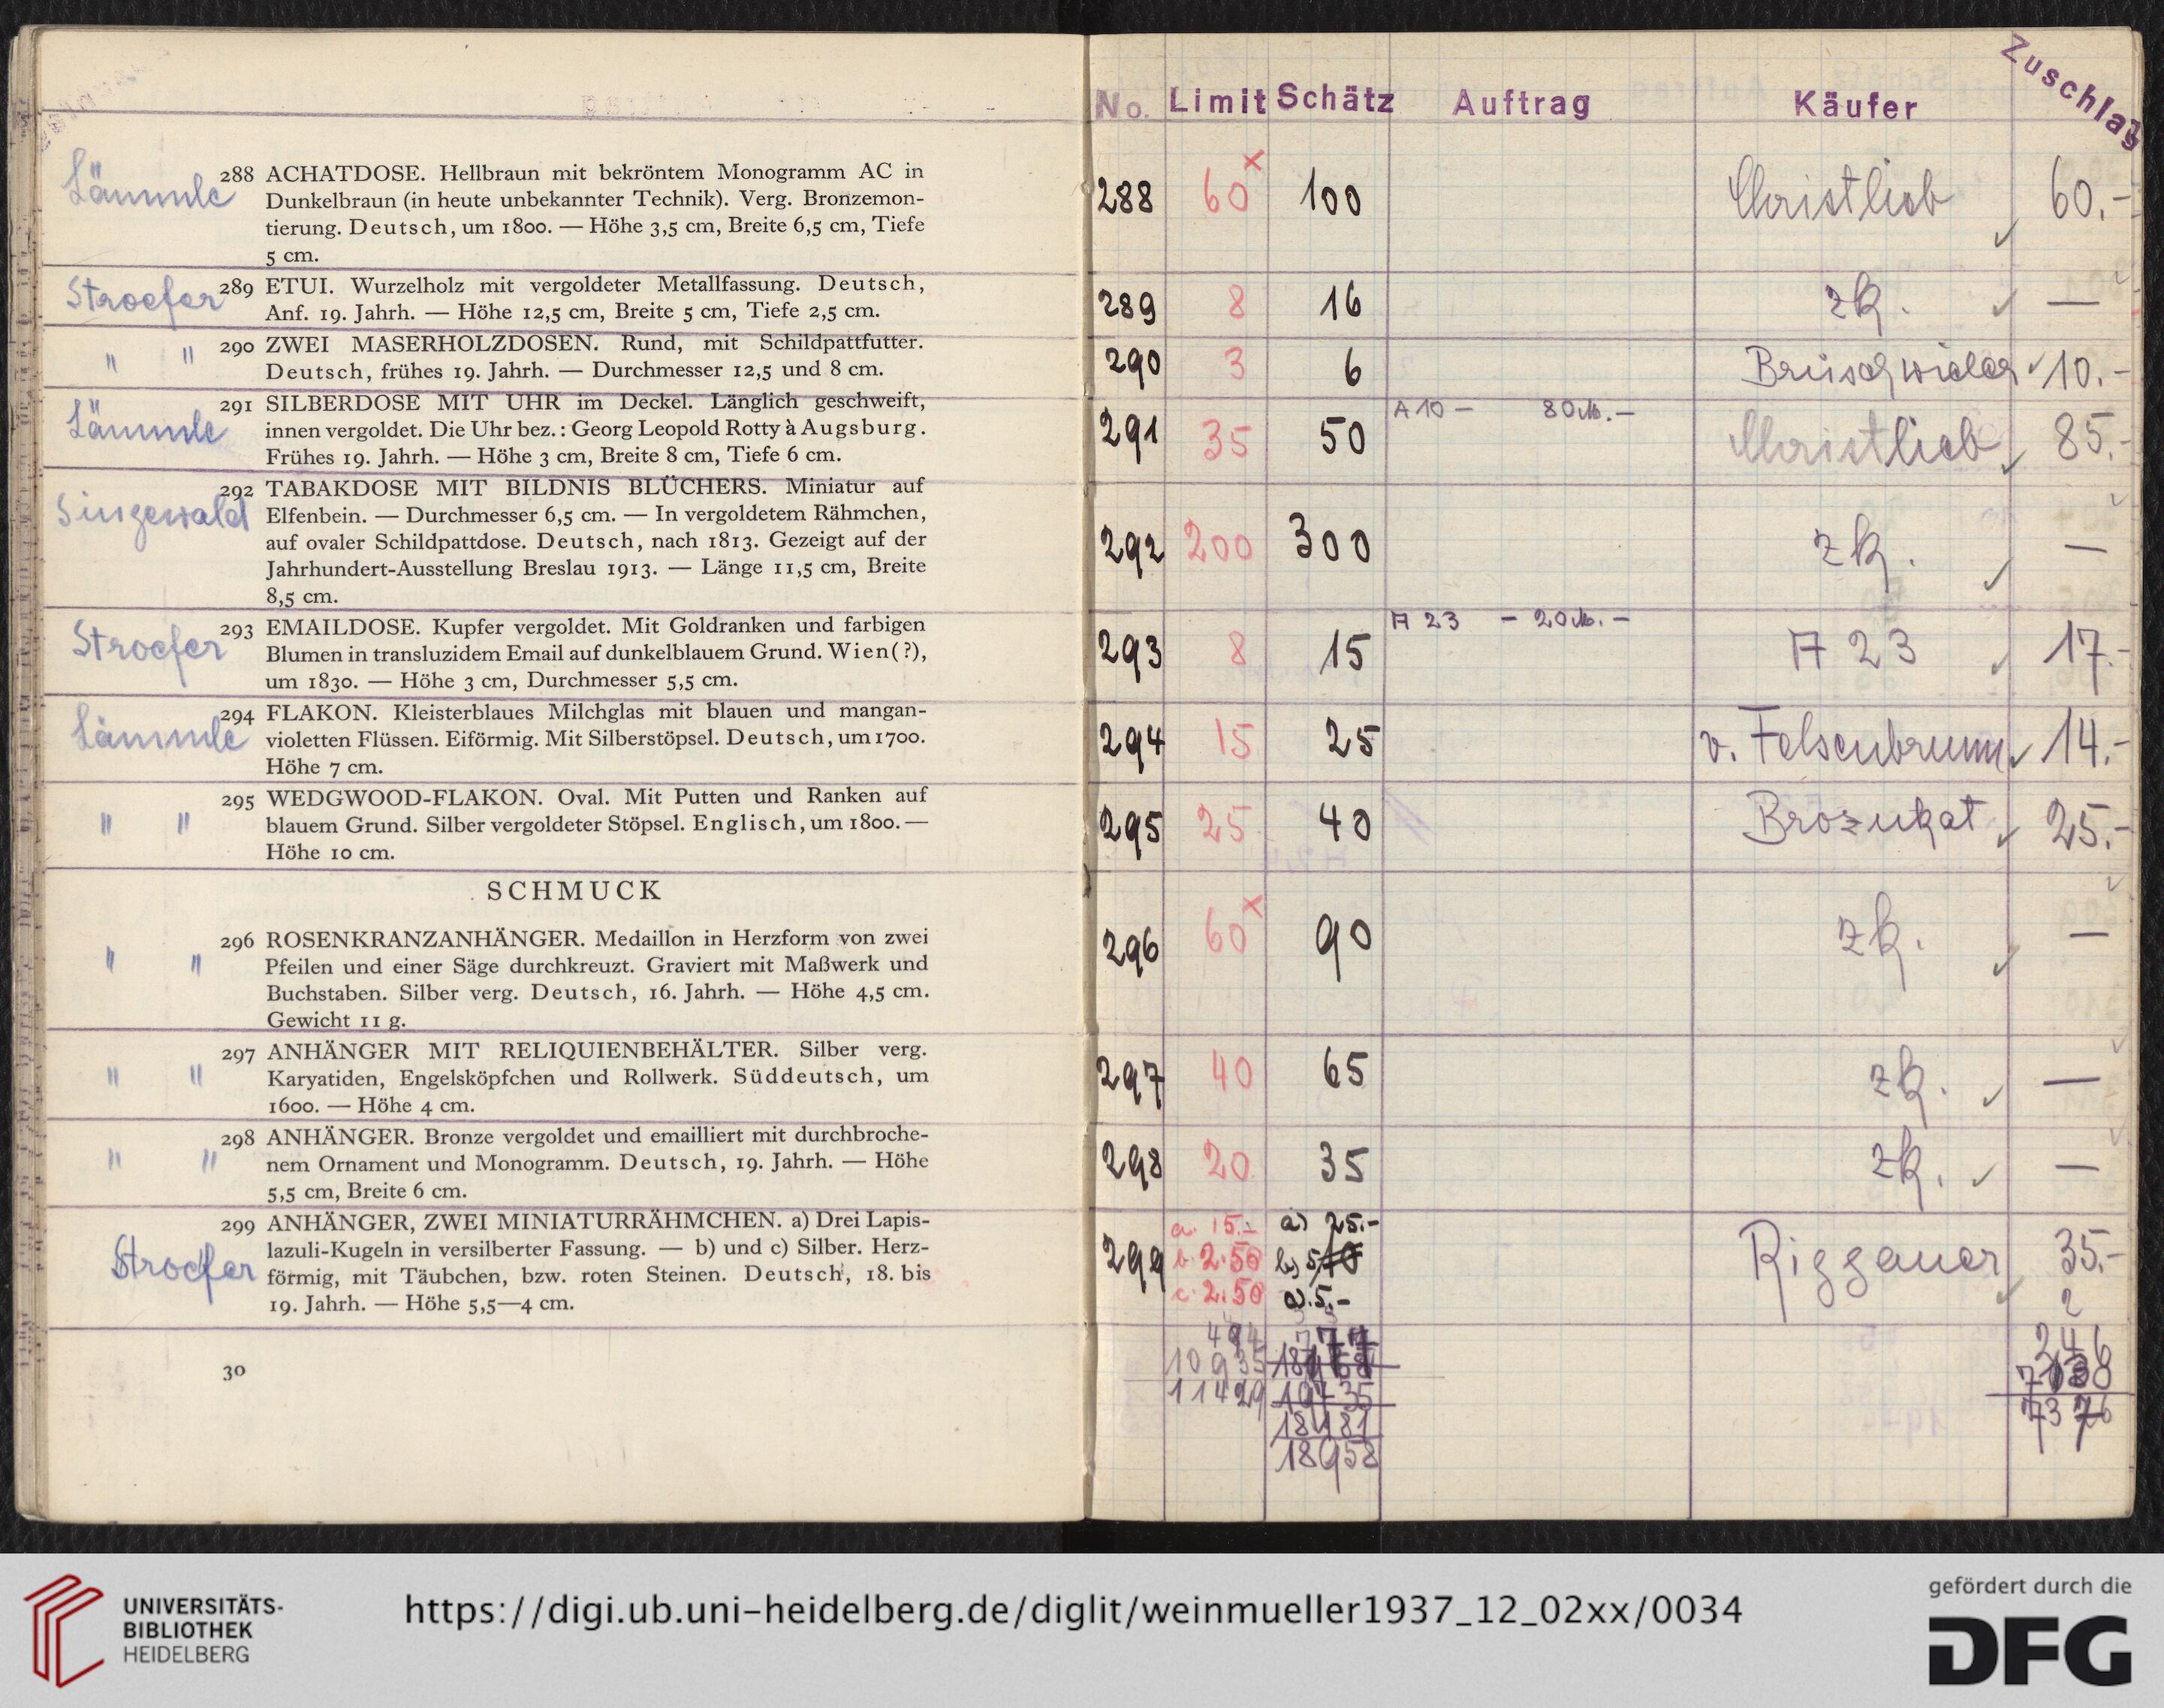 Lämmle
288 ACHATDOSE. Hellbraun mit bekröntem Monogramm AC in
Dunkelbraun (in heute unbekannter Technik). Verg. Bronzemon-
tierung. Deutsch, um 1800. — Höhe 3,5 cm, Breite 6,5 cm, Tiefe
5 cm.
Stroefer
289 ETUI. Wurzelholz mit vergoldeter Metallfassung. Deutsch,
Anf. 19. Jahrh. — Höhe 12,5 cm, Breite 5 cm, Tiefe 2,5 cm.
" "
290 ZWEI MASERHOLZDOSEN. Rund, mit Schildpattfutter.
Deutsch, frühes 19. Jahrh. — Durchmesser 12,5 und 8 cm.
Lämmle
291 SILBERDOSE MIT UHR im Deckel. Länglich geschweift,
innen vergoldet. Die Uhr bez.: Georg Leopold Rotty à Augsburg.
Frühes 19. Jahrh. — Höhe 3 cm, Breite 8 cm, Tiefe 6 cm.
Singewald
292 TABAKDOSE MIT BILDNIS BLÜCHERS. Miniatur auf
Elfenbein. — Durchmesser 6,5 cm. — In vergoldetem Rähmchen,
auf ovaler Schildpattdose. Deutsch, nach 1813. Gezeigt auf der
Jahrhundert-Ausstellung Breslau 1913. — Länge 11,5 cm, Breite
8,5 cm.
Stroefer
293 EMAILDOSE. Kupfer vergoldet. Mit Goldranken und farbigen
Blumen in transluzidem Email auf dunkelblauem Grund. Wien(?),
um 1830. — Höhe 3 cm, Durchmesser 5,5 cm.
Lämmle
294 FLAKON. Kleisterblaues Milchglas mit blauen und mangan-
violetten Flüssen. Eiförmig. Mit Silberstöpsel. Deutsch, um 1700.
Höhe 7 cm.
" "
295 WEDGWOOD-FLAKON. Oval. Mit Putten und Ranken auf
blauem Grund. Silber vergoldeter Stöpsel. Englisch, um 1800. —
Höhe 10 cm.
SCHMUCK
" "
296 ROSENKRANZANHÄNGER. Medaillon in Herzform von zwei
Pfeilen und einer Säge durchkreuzt. Graviert mit Maßwerk und
Buchstaben. Silber verg. Deutsch, 16. Jahrh. — Höhe 4,5 cm.
Gewicht 11 g.
" "
297 ANHÄNGER MIT RELIQUIENBEHÄLTER. Silber verg.
Karyatiden, Engelsköpfchen und Rollwerk. Süddeutsch, um
1600. — Höhe 4 cm.
" "
298 ANHÄNGER. Bronze vergoldet und emailliert mit durchbroche-
nem Ornament und Monogramm. Deutsch, 19. Jahrh. — Höhe
5,5 cm, Breite 6 cm.
Stroefer
299 ANHÄNGER, ZWEI MINIATURRÄHMCHEN. a) Drei Lapis-
lazuli-Kugeln in versilberter Fassung. — b) und c) Silber. Herz-
förmig, mit Täubchen, bzw. roten Steinen. Deutsch, 18. bis
19. Jahrh. — Höhe 5,5—4 cm.
30
No. Limit Schätz Auftrag Käufer Zuschlag
288 60 x 100 Christlieb ✓ 60.-
289 8 16 zk. ✓ —
290 3 6 Brüschwieler ✓ 10.-
291 35 50 A 10 – 80 M. – Christlieb ✓ 85.-
292 200 300 zk. ✓ —
293 8 15 A 23 – 20 M. – A 23 ✓ 17.-
294 15 25 v. Felsenbrunn ✓ 14.-
295 25 40 Brozukat ✓ 25.-
296 60 x 90 zk. ✓ —
297 40 65 zk. ✓ —
298 20 35 zk. ✓ —
299 a. 15.- a) 25.- Riggauer ✓ 35.-
b. 2.50 b) 5
c. 2.50 c). 5.-
494 777 246
10935
11429 19735 7376
18181
18958
UNIVERSITÄTS-
BIBLIOTHEK
HEIDELBERG
https://digi.ub.uni-heidelberg.de/diglit/weinmueller1937_12_02xx/0034
gefördert durch die
DFG